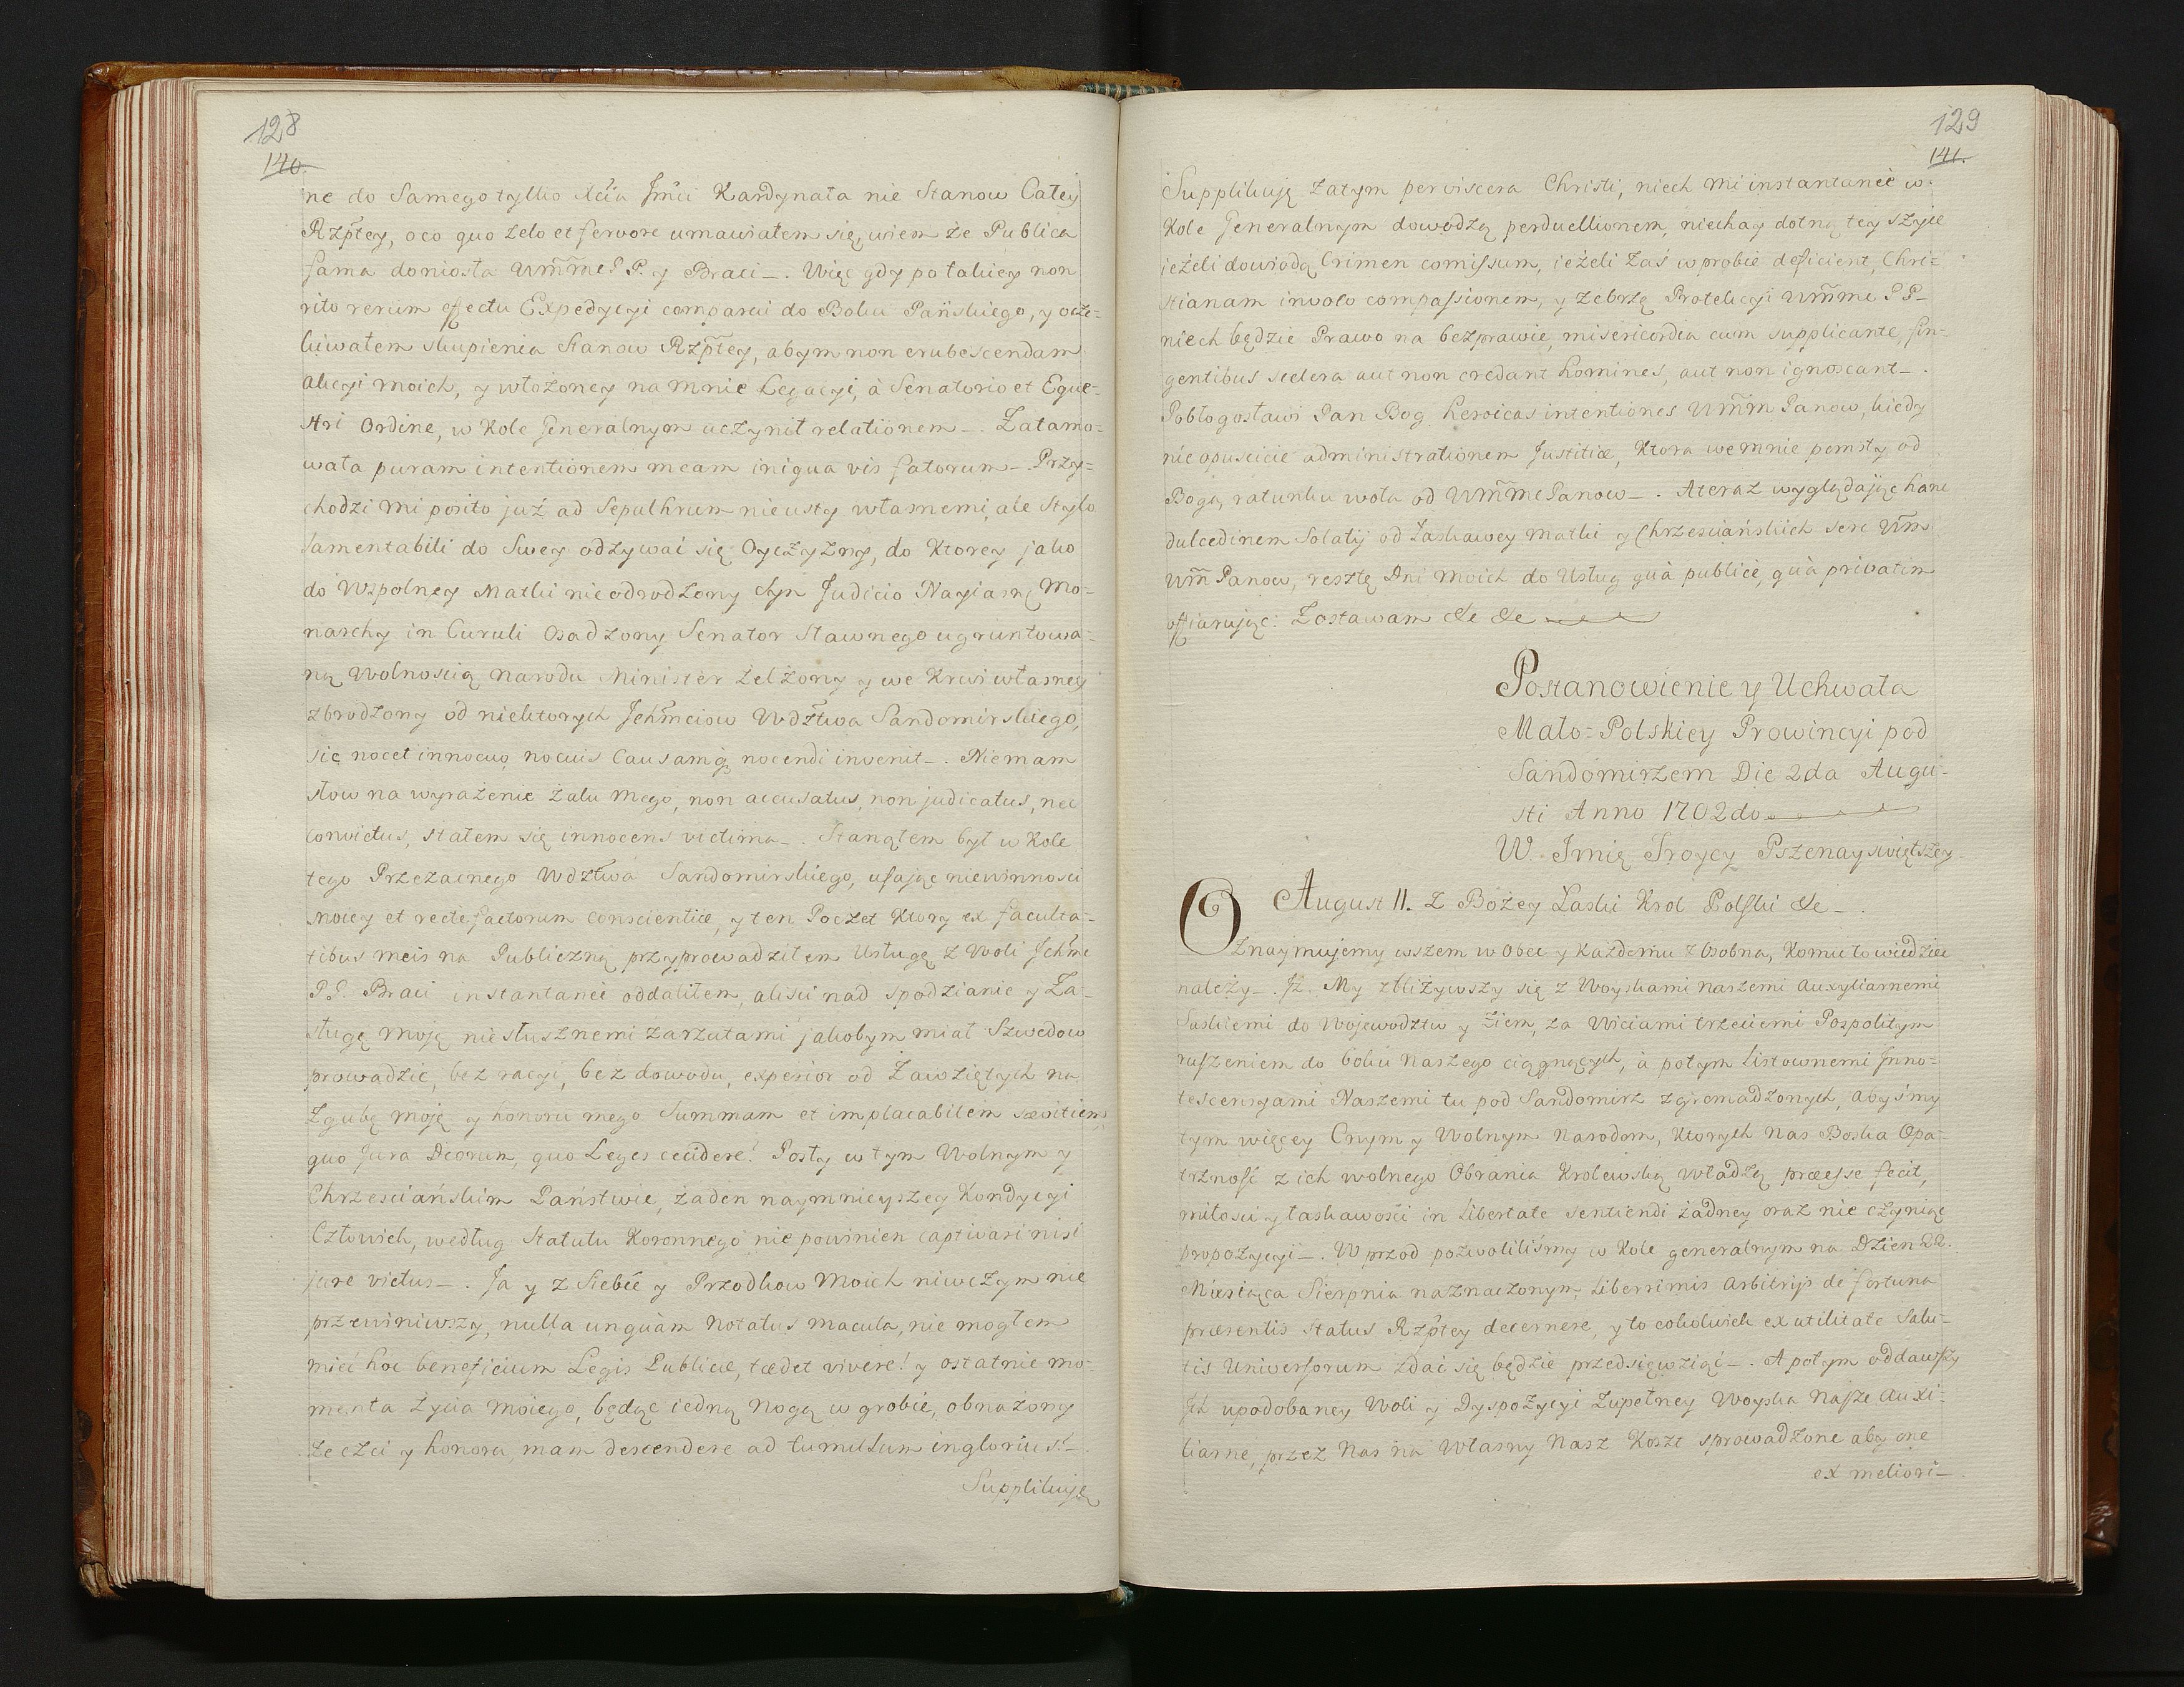 128
140.
ne do Samego tylko Xcia Jmci Kardynała nie Stanow Całey
Rzptey, oco quo zelo et fervore umawiałem się, wiem że Publica
fama doniosła Ummc P. P. y Braci_. Więc gdy po takiey non
rito rerum effectu Expedycyi comparui do Boku Pańskiego, y ocze=
kiwałem skupienia Stanow Rzptey, abym non erubescendam
akcyi moich, y włożoney na mnie Legacyi, à Senatorio et Eque=
stri Ordine, w Kole Generalnym uczynił relationem_. Zatamo=
wała puram intentionem meam iniqua vis fatorum_. Przy=
chodzi mi posito już ad Sepulkrum nie usty własnemi, ale Stylo
lamentabili do Swey odzywać się Oyczyzny, do Ktorey jako
do Wspolney Matki nieodrodzony Syn Judicio Nayiasn. Mo=
narchy in Curuli Osadzony Senator Sławnego ugruntowa=
ną Wolnością Narodu Minister zelżony y we Krwi własney
zbrodzony od niektorych Jchmciow Wdztwa Sandomirskiego,
sic nocet innocuo nocuus Causamq; nocendi invenit_. Niemam
słow na wyrażenie żalu mego, non accusatus, non judicatus, nec
convictus, stałem się innocens victima_. Stanąłem był w Kole
tego Przezacnego Wdztwa Sandomirskiego, ufając niewinności
moiey et recte factorum conscientiæ, y ten Poczet Ktory ex faculta=
tibus meis na Publiczną przyprowadziłem Usługę z Woli Jchmc
P. P. Braci instantanee oddaliłem, aliści nad spodzianie y Za=
sługę moję niesłusznemi zarzutami jakobym miał Szwedow
prowadzić, bez racyi, bez dowodu, experior od Zawziętych na
Zgubę moję y honoru mego Summam et implacabilem sævitiem,
quo Jura Deorum, quo Leges cecidere! Posty w tym Wolnym y
Chrzesciańskim Państwie, żaden naymnieyszey Kondycyi
Człowiek, według Statutu Koronnego nie powinien captivari nisi
jure victus_. Ja y z Siebie y Przodkow Moich niwczym nie
przewiniwszy, nulla unquàm notatus macula, nie mogłem
mieć hoc beneficium Legis Publicæ, tædet vivere! y ostatnie mo=
menta życia moiego, będąc iedną nogą w grobie, obnażony
ze czci y honoru, mam descendere ad tumulum inglorius!_
Supplikuję
129
141.
Supplikuję zatym per viscera Christi, niech mi instantanee w
Kole Generalnym dowodzą perduellionem, niechay dotną tey szyie
jeżeli dowiodą Crimen comissum, ieżeli zaś w probie deficient, Chri=
stianam invoco compassionem, y zebrzę Protekcyi Ummc P P_
niech będzie Prawo na bezprawie, misericordia cum supplicante, fin=
gentibus scelera aut non credant homines, aut non ignoscant_.
Pobłogosławi Pan Bog heroicas intentiones Umm Panow, kiedy
nie opuścicie administrationem Justitiæ, Ktora we mnie pomsty od
Boga, ratunku woła od Ummc Panow_. A teraz wyglądając hanc
dulcedinem Solatij od Łaskawey Matki y Chrzesciańskich serc Um
Um Panow, resztę Dni moich do Usług quà publicè, quà privatim
offiarując: Zostawam &c &c
Postanowienie y Uchwała
Mało=Polskiey Prowincyi pod
Sandomirzem Die 2da Augu=
sti Anno 1702do
W. Imię Troycy Pszenayświętszey
August II. z Bożey Łaski Krol Polski &c_.
Oznaymujemy wszem w Obec y Każdemu z Osobna, Komu to wiedzieć
należy_. Iż. My zbliżywszy się z Woyskami Naszemi auxyliarnemi
Saskiemi do Wojewodztw y Ziem, za Wiciami trzeciemi Pospolitym
ruszeniem do boku Naszego ciągnących, à potym Listownemi Inno=
tescencyami Naszemi tu pod Sandomirz zgromadzonych, abyśmy
tym więcey Cnym y Wolnym Narodom, Ktorych Nas Boska Opa=
trzność z ich wolnego Obrania Krolewską Władzą præesse fecit,
miłości y łaskawości in libertate sentiendi żadney oraz nie czyniąc
propozycyi_. W przod pozwoliliśmy w Kole generalnym na Dzien 22.
Miesiąca Sierpnia naznaczonym, liberrimis Arbitrijs de fortuna
præsentis Status Rzptey decernere, y to cokolwiek ex utilitate Salu=
tis Universorum zdać się będzie przedsięwziąć_. A potym oddawszy
Ich upodobaney Woli y Dyspozycyi Zupełney Woyska Nasze Auxi=
liarne, przez Nas na Własny Nasz Koszt sprowadzone aby one
ex meliori_